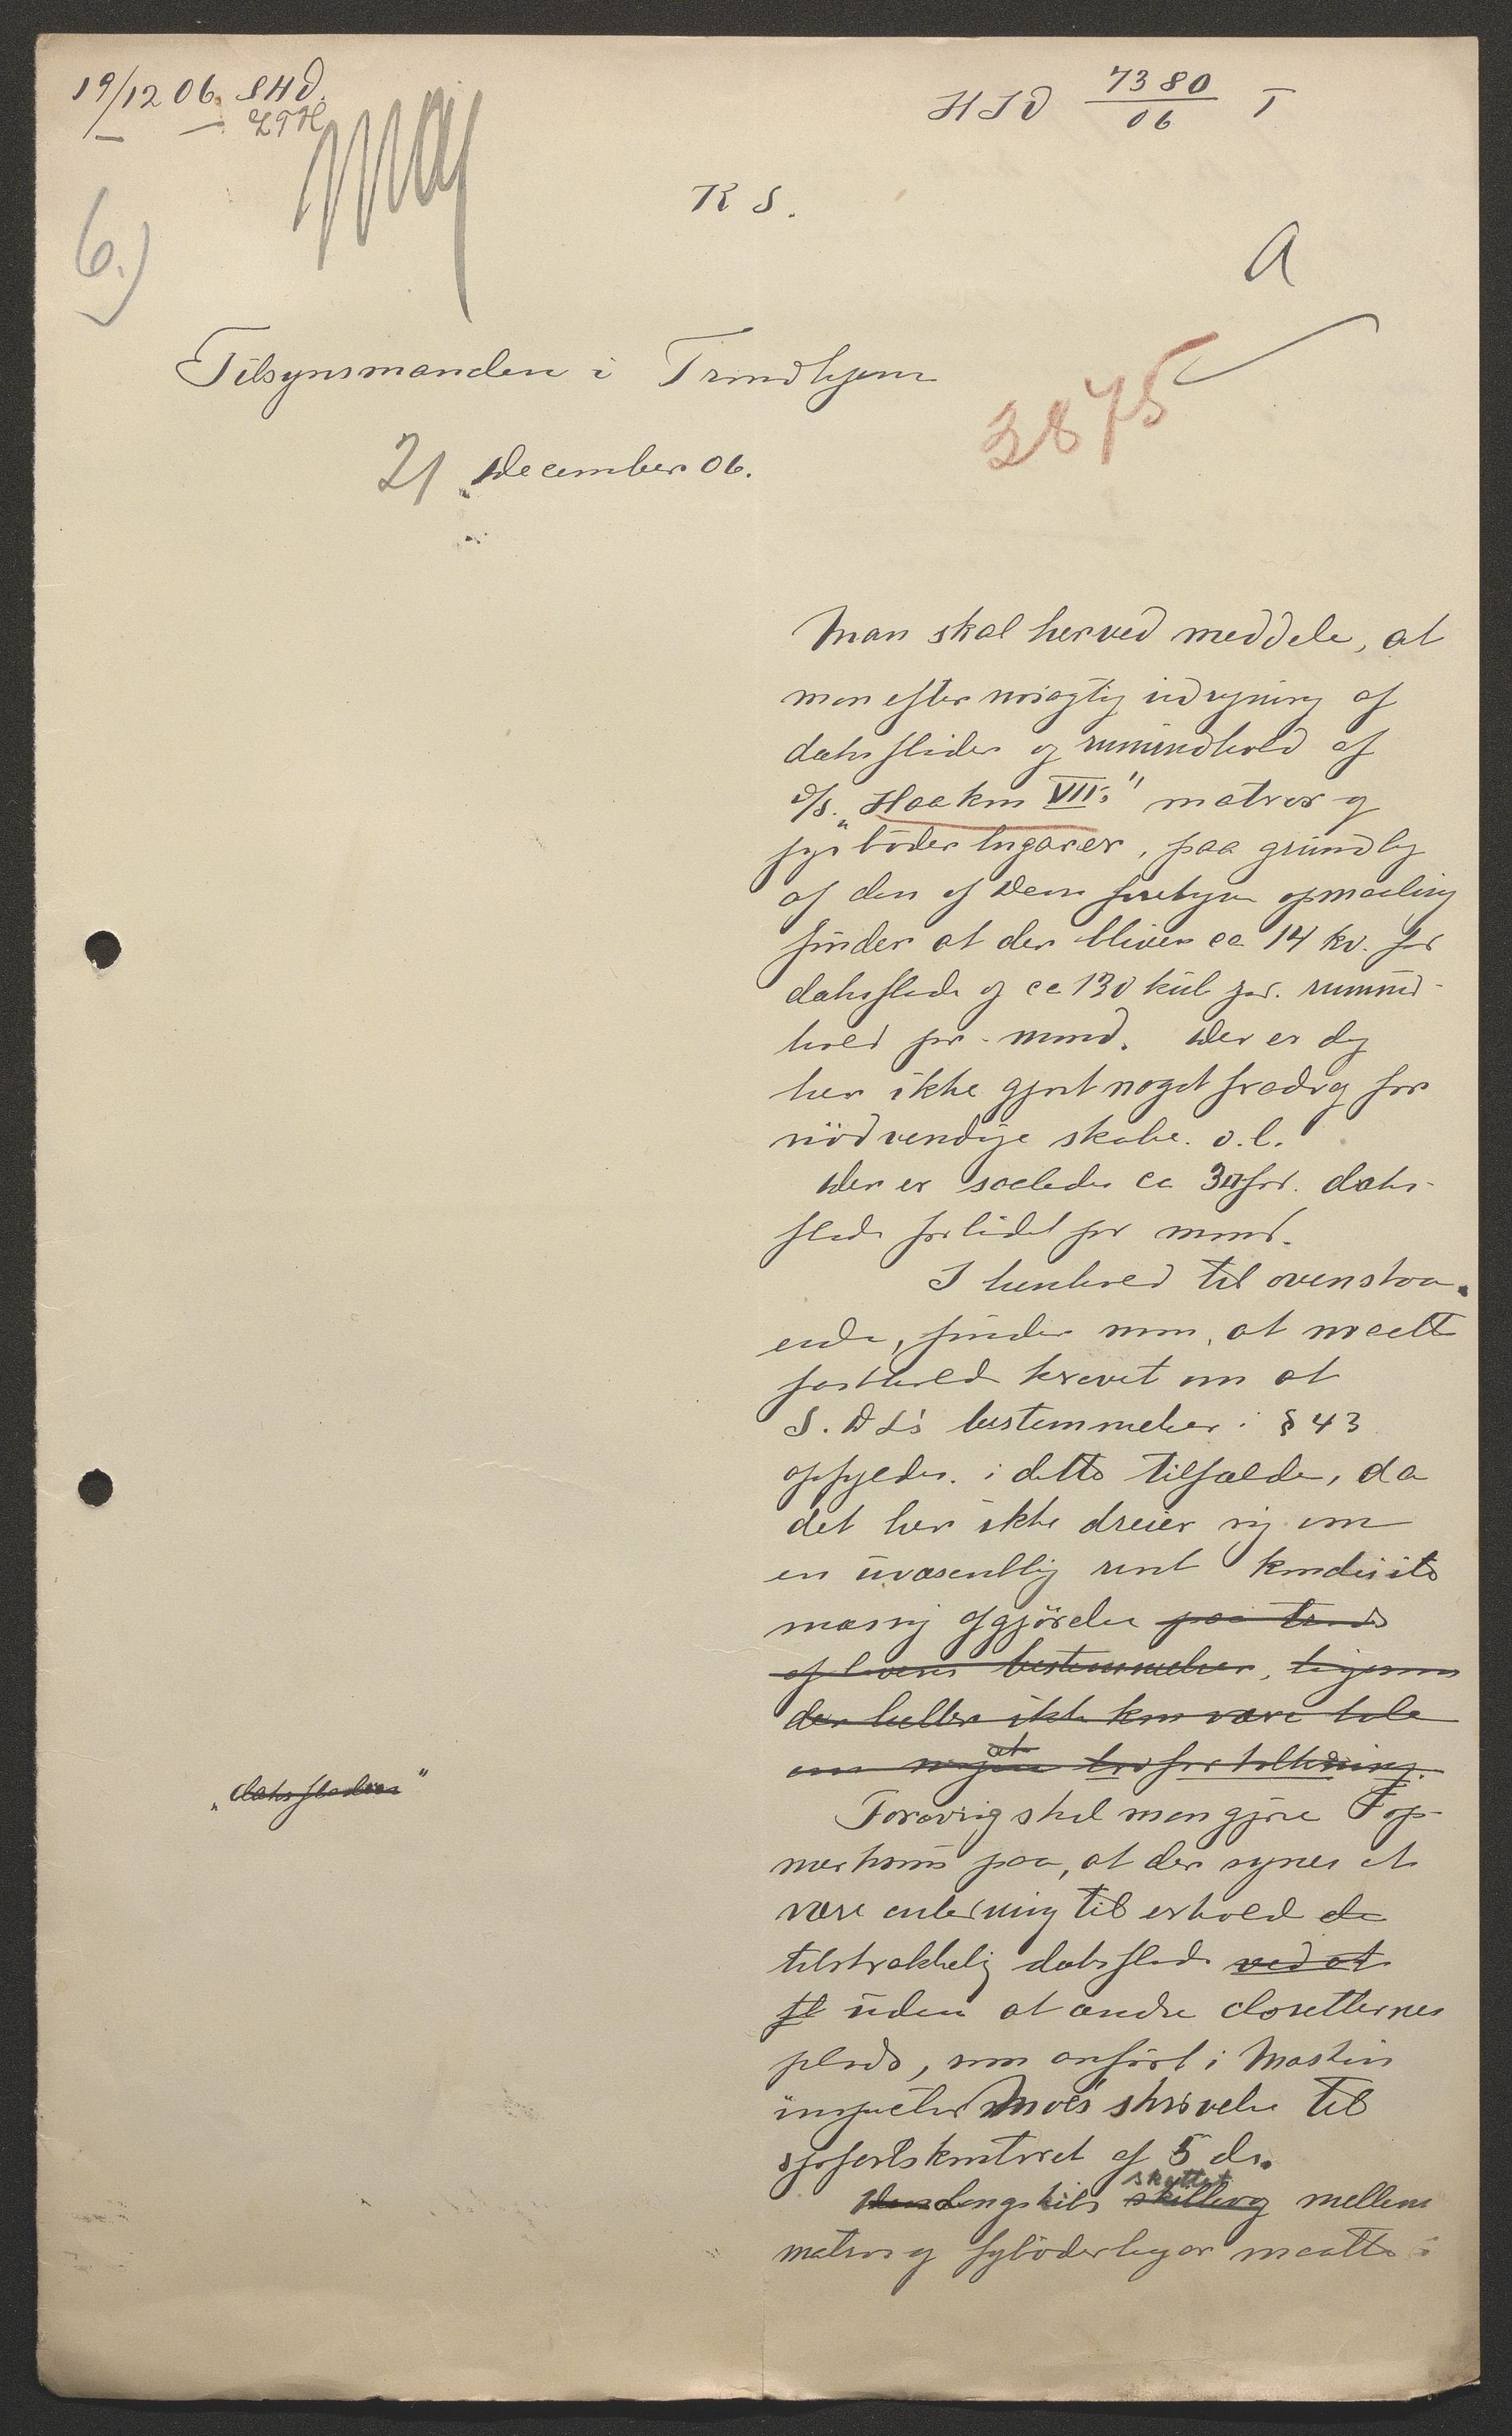 19/12 06. SHD.
HSD 7380/06 T
R S.
6.)
A
Tilsynsmanden i Trondhjem
3875
21 December 06.
Man skal herved meddele, at
man efter nøiagtig udregning af
dæksflader og rumindhold af
d/s. „Haakon VII's" matros og
fyrbøder lugarer, paa grundlag
af den af Dem foretagne opmaaling
finder at der bliver ca 14 kv. fod
dæksflade og ca 130 kub fod. rumind-
hold pr. mand. Der er dog
her ikke gjort noget fradrag for
nödvendige skabe. o.l.
Der er saaledes ca dæks-
flade forlidet pr mand.
I henhold til ovenstaa-
ende, finder man, at maatte
fastholde kravet om at
S. D L's bestemmelser i § 43
opfyldes. i dette tilfælde, da
det her ikke dreier sig om
en uvæsentlig rent
mæssig afgjörelse paa trods
af lovens bestemmelser, ligesom
der heller ikke kan være tale
om nogen at lovfortolkning.
„dæksfladen"
Forøvrig skal man gjøre op-
merksom paa, at der synes at
være anledning til erholde de
tilstrækkelig dæksflade ved at
fl uden at ændre closetternes
plads, som anført i Maskin
inspektør Moe's skrivelse til
sjøfartskontoret af 5 ds.
Den Langskibs skilleveg skottet mellem
matros og fyrbøderlugar maatte i